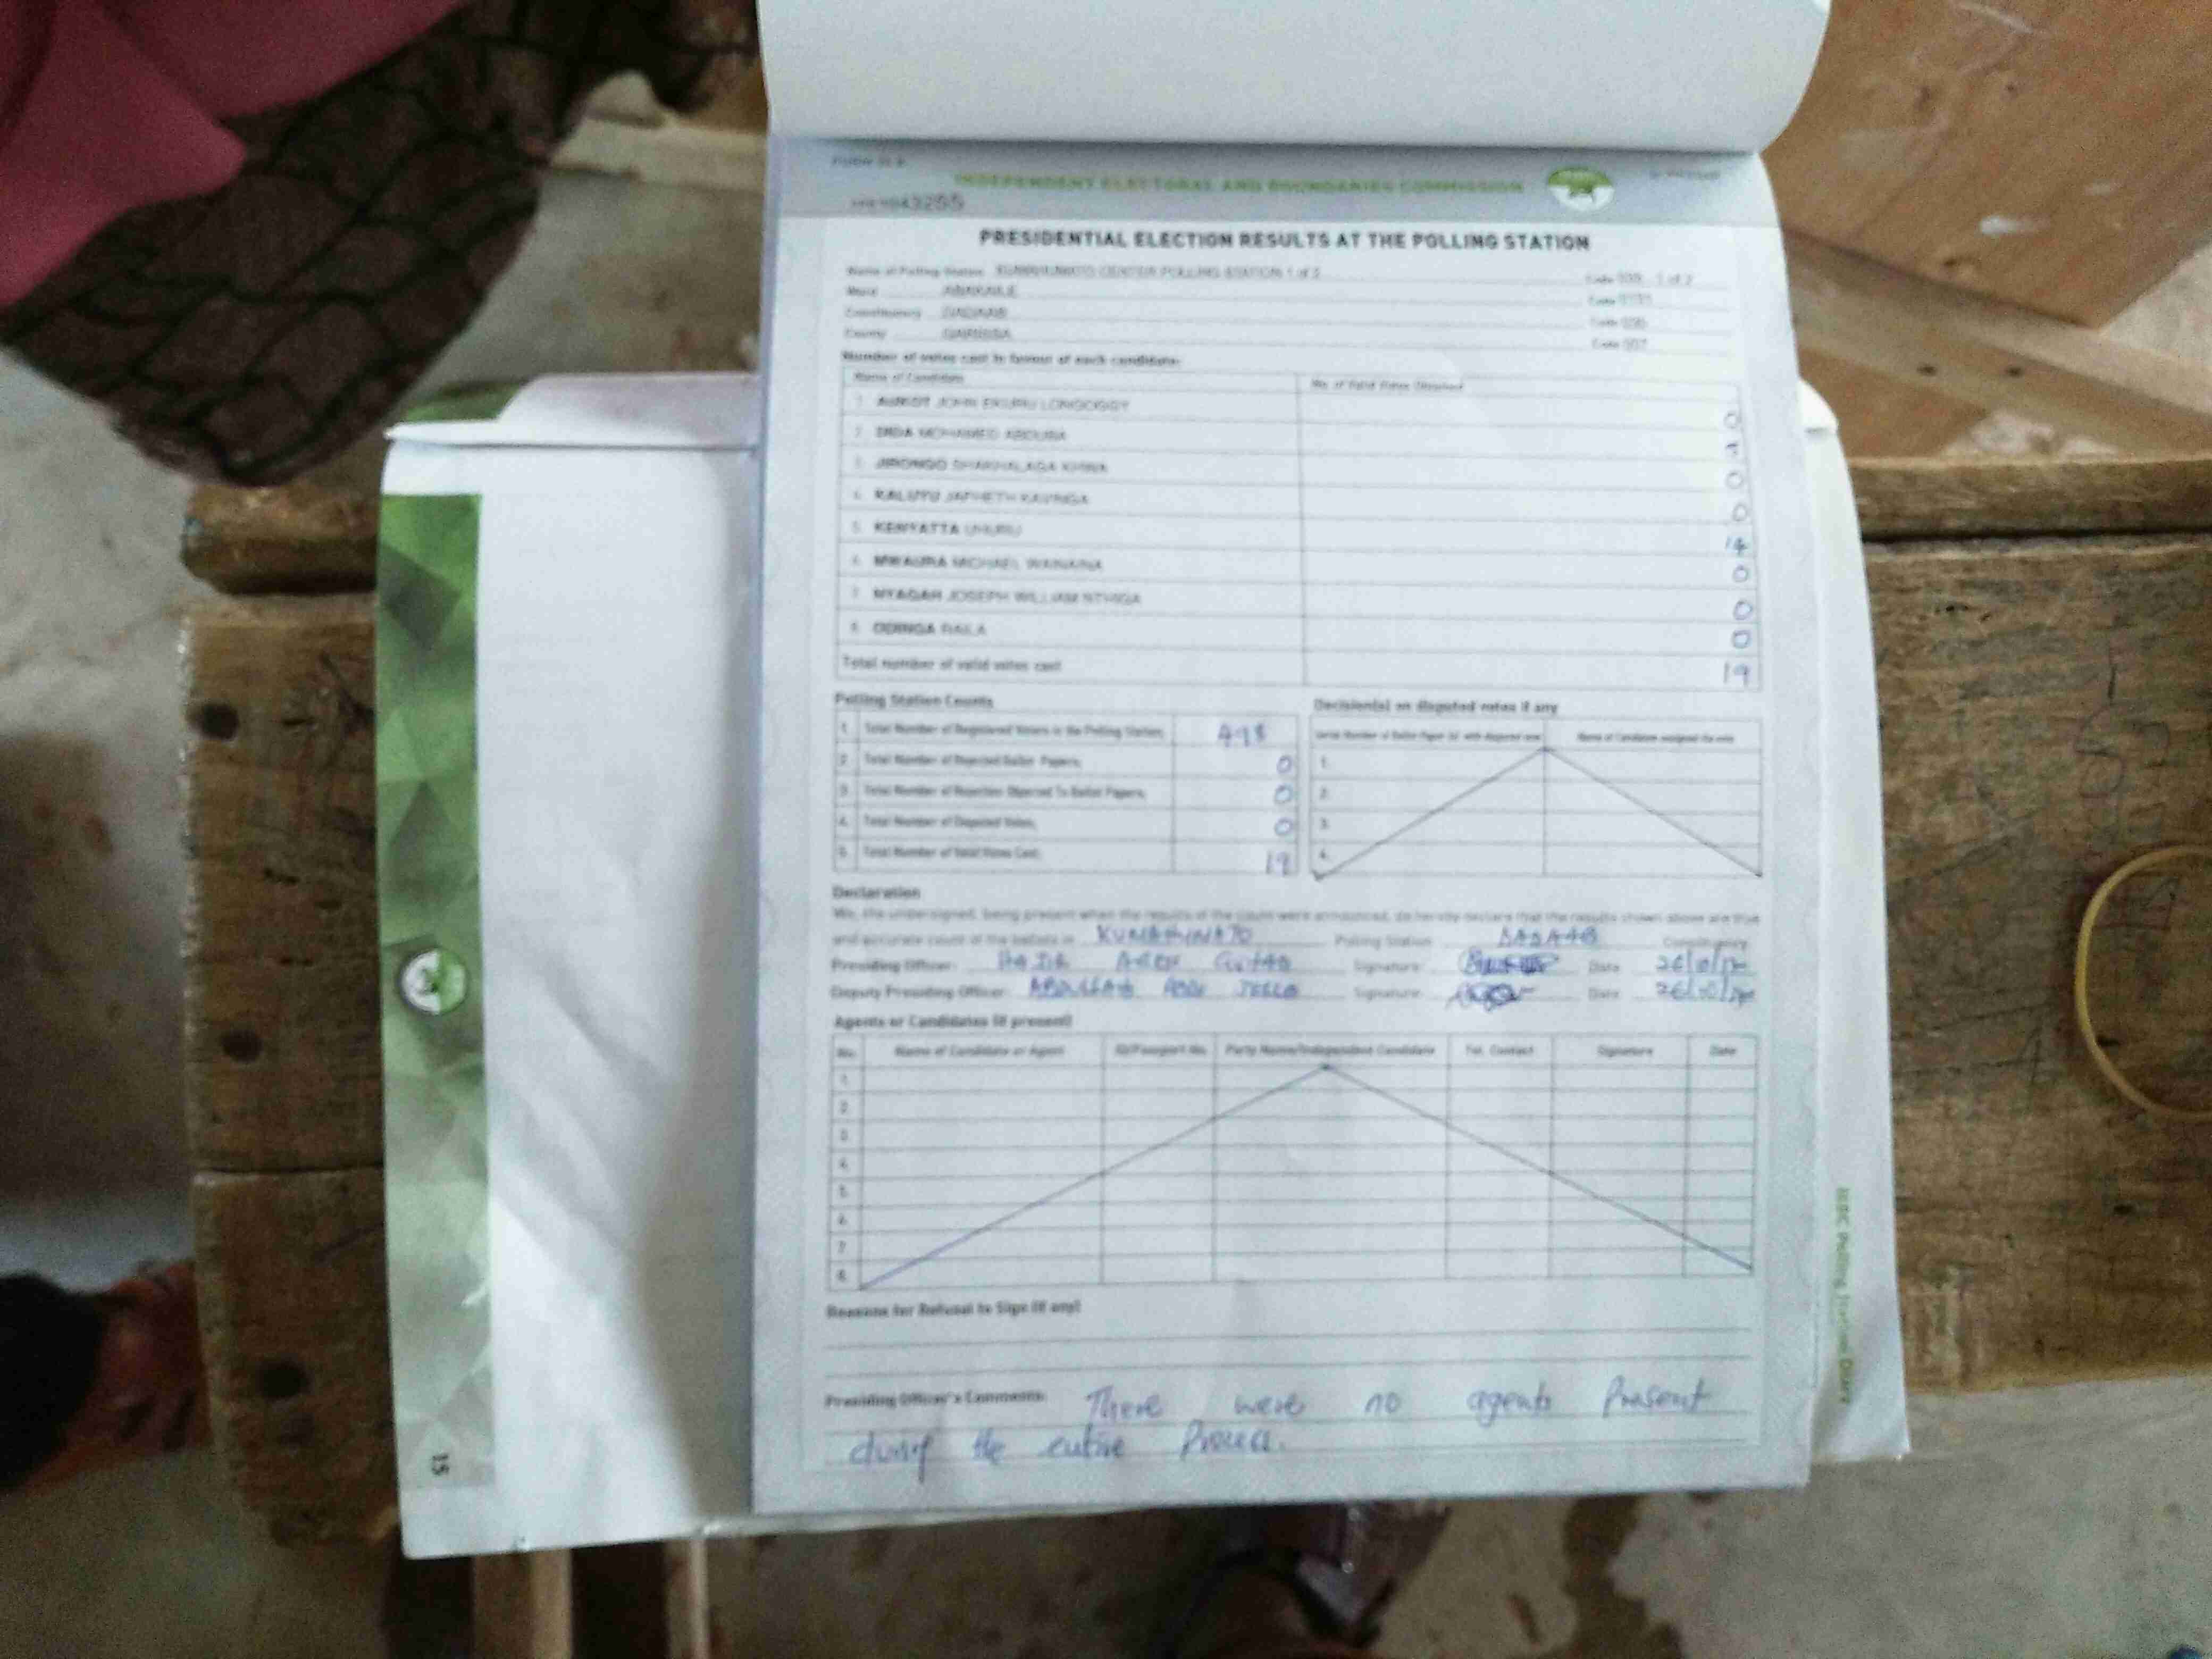 FORM 34 A
INDEPENDENT ELECTORAL AND BOUNDARIES COMMISSION
43255
PRESIDENTIAL ELECTION RESULTS AT THE POLLING STATION
Name of Polling Station CENTER POLLING STATION 1 of
Ward
Constituency DADAAB
County GARISSA
Number of votes cast in favour of each candidate:
Name of Candidate No. of Valid Votes Obtained
1. AUKOT JOHN EKURU LONGOGGY 0
2. DIDA MOHAMED ABDUBA
3. JIRONGO SHAKHALAGA KHWA 0
4. KALUYU JAPHETH KAVINGA 0
5. KENYATTA UHURU 14
6. MWAURA MICHAEL WAINAINA 0
7. NYAGAH JOSEPH WILLIAM NTHIGA 0
8. ODINGA RAILA 0
Total number of valid votes cast 19
Polling Station Counts
1. Total Number of Registered Voters in the Polling Station; 498
2. Total Number of Rejected Ballot Papers; 0
3. Total Number of Rejection Objected To Ballot Papers; 0
4. Total Number of Disputed Votes; 0
5. Total Number of Valid Votes Cast; 19
Decision(s) on disputed votes if any
Serial Number of Ballot Paper (s) with disputed vote Name of Candidate assigned the vote
1.
2.
3.
4.
Declaration
We, the undersigned, being present when the results of the count were announced, do hereby declare that the results shown above are true
and accurate count of the ballots in KUMAHUMATO Polling Station DADAAB Constituency
Presiding Officer: Signature Date 26/10/17
Deputy Presiding Officer: ABDULLAHI ABDI Signature Date 26/10/17
Agents or Candidates (if present)
No. Name of Candidate or Agent ID/Passport No. Party Name/Independent Candidate Tel. Contact Signature Date
1.
2.
3.
4.
5.
6.
7.
8.
Reasons for Refusal to Sign (if any)
Presiding Officer's Comments: There were no agents Present
during the entire Process.
IEBC Polling Station Diary
15